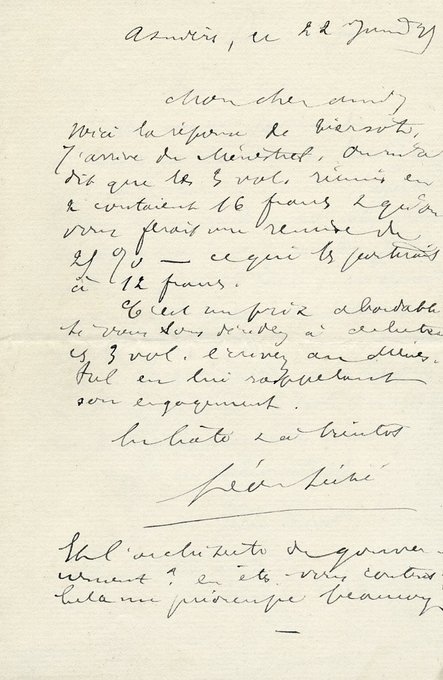 Asnières, le 22
Mon cher ami
Voici la réponse de Tiersot.
J'arrive du Ménestrel. On m'a
dit que les 3 vol. réunis en
2 coûtaient 16 francs & qu'on
vous ferait une remise de
25 % — ce qui les porterait
à 12 francs.
C'est un prix abordable
Si vous vous décidez à acheter
ces 3 vol. écrivez au Ménes-
trel en lui rappelant
son engagement.
En hâte & à bientôt
Léon Séché
Et l'architecte du gouver-
nement ? en êtes-vous content
Cela me préoccupe beaucoup